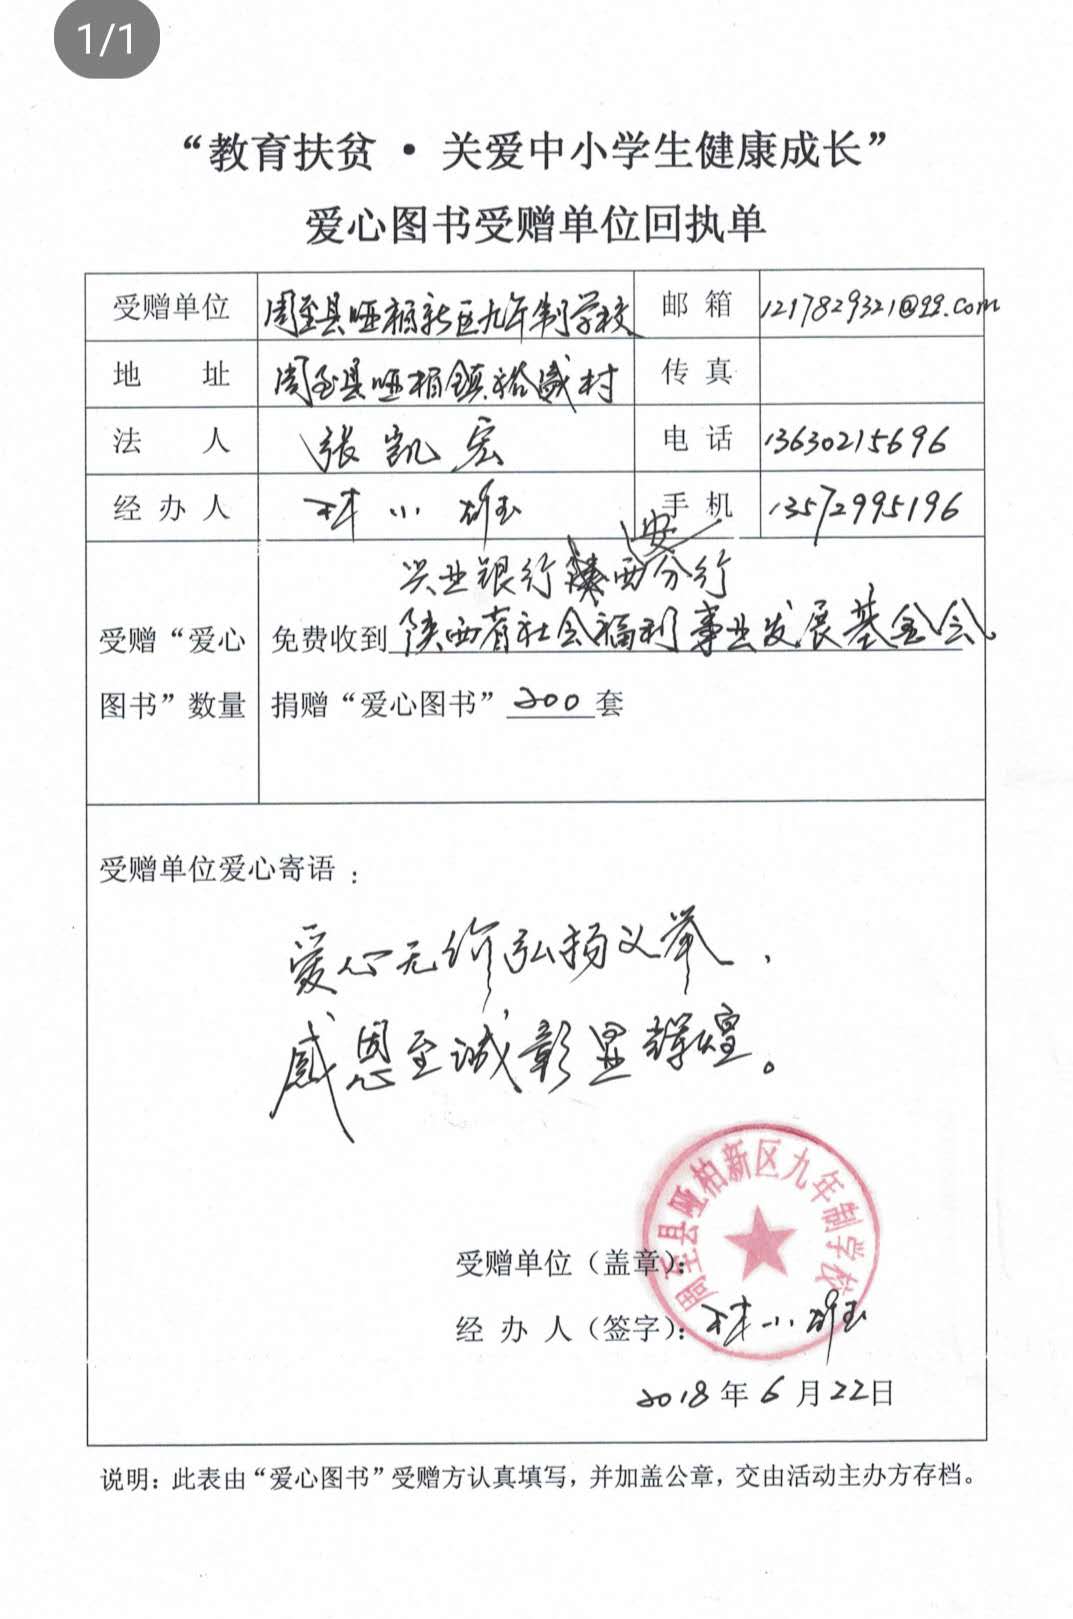 1/1
“教育扶贫·关爱中小学生健康成长”
爱心图书受赠单位回执单
受赠单位 周至县哑柏新区九年制学校 邮箱 1217829321@qq.com
地址 周至县哑柏镇裕盛村 传真
法人 张凯宏 电话 13630215696
经办人 林小雄 手机 13572995196
西安
兴业银行陕西分行
受赠“爱心 免费收到陕西省社会福利事业发展基金会。
图书”数量 捐赠“爱心图书” 200 套
受赠单位爱心寄语：
爱心无价弘扬义举，
感恩至诚彰显辉煌。
周至县哑柏新区九年制学校
受赠单位（盖章）：
经办人（签字）：林小雄
2018年6月22日
说明：此表由“爱心图书”受赠方认真填写，并加盖公章，交由活动主办方存档。